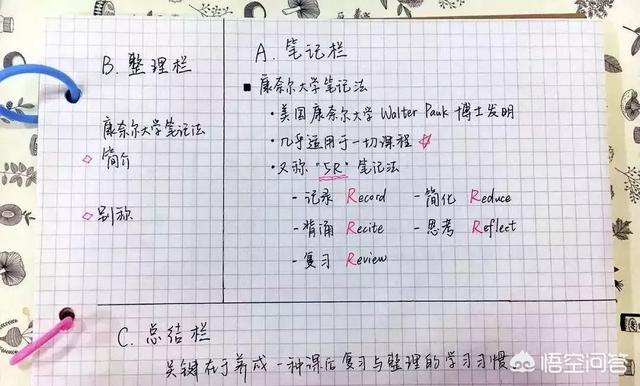 B. 整理栏
康奈尔大学笔记法
简介
别称
A. 笔记栏
■ 康奈尔大学笔记法
· 美国康奈尔大学 Walter Pauk 博士发明
· 几乎适用于一切课程 ☆
· 又称 "5R" 笔记法
- 记录 Record - 简化 Reduce
- 背诵 Recite - 思考 Reflect
- 复习 Review
C. 总结栏
关键在于养成一种课后复习与整理的学习习惯。
悟空问答